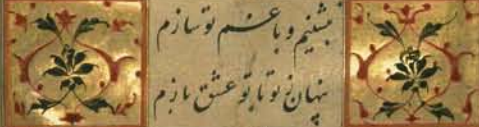 بنشینم و با غم تو سازم
پنهان ز تو با تو عشق بازم